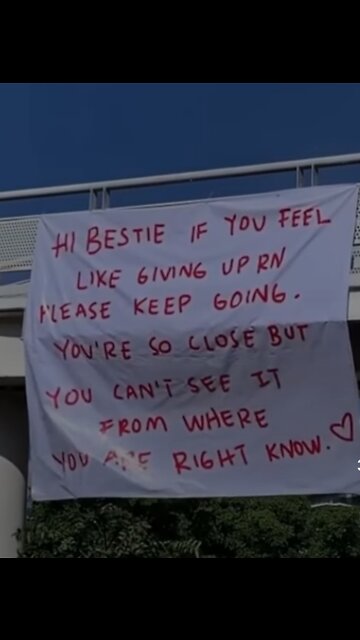 HI BESTIE IF YOU FEEL
LIKE GIVING UP RN
PLEASE KEEP GOING.
YOU'RE SO CLOSE BUT
YOU CAN'T SEE IT
FROM WHERE
YOU ARE RIGHT KNOW.